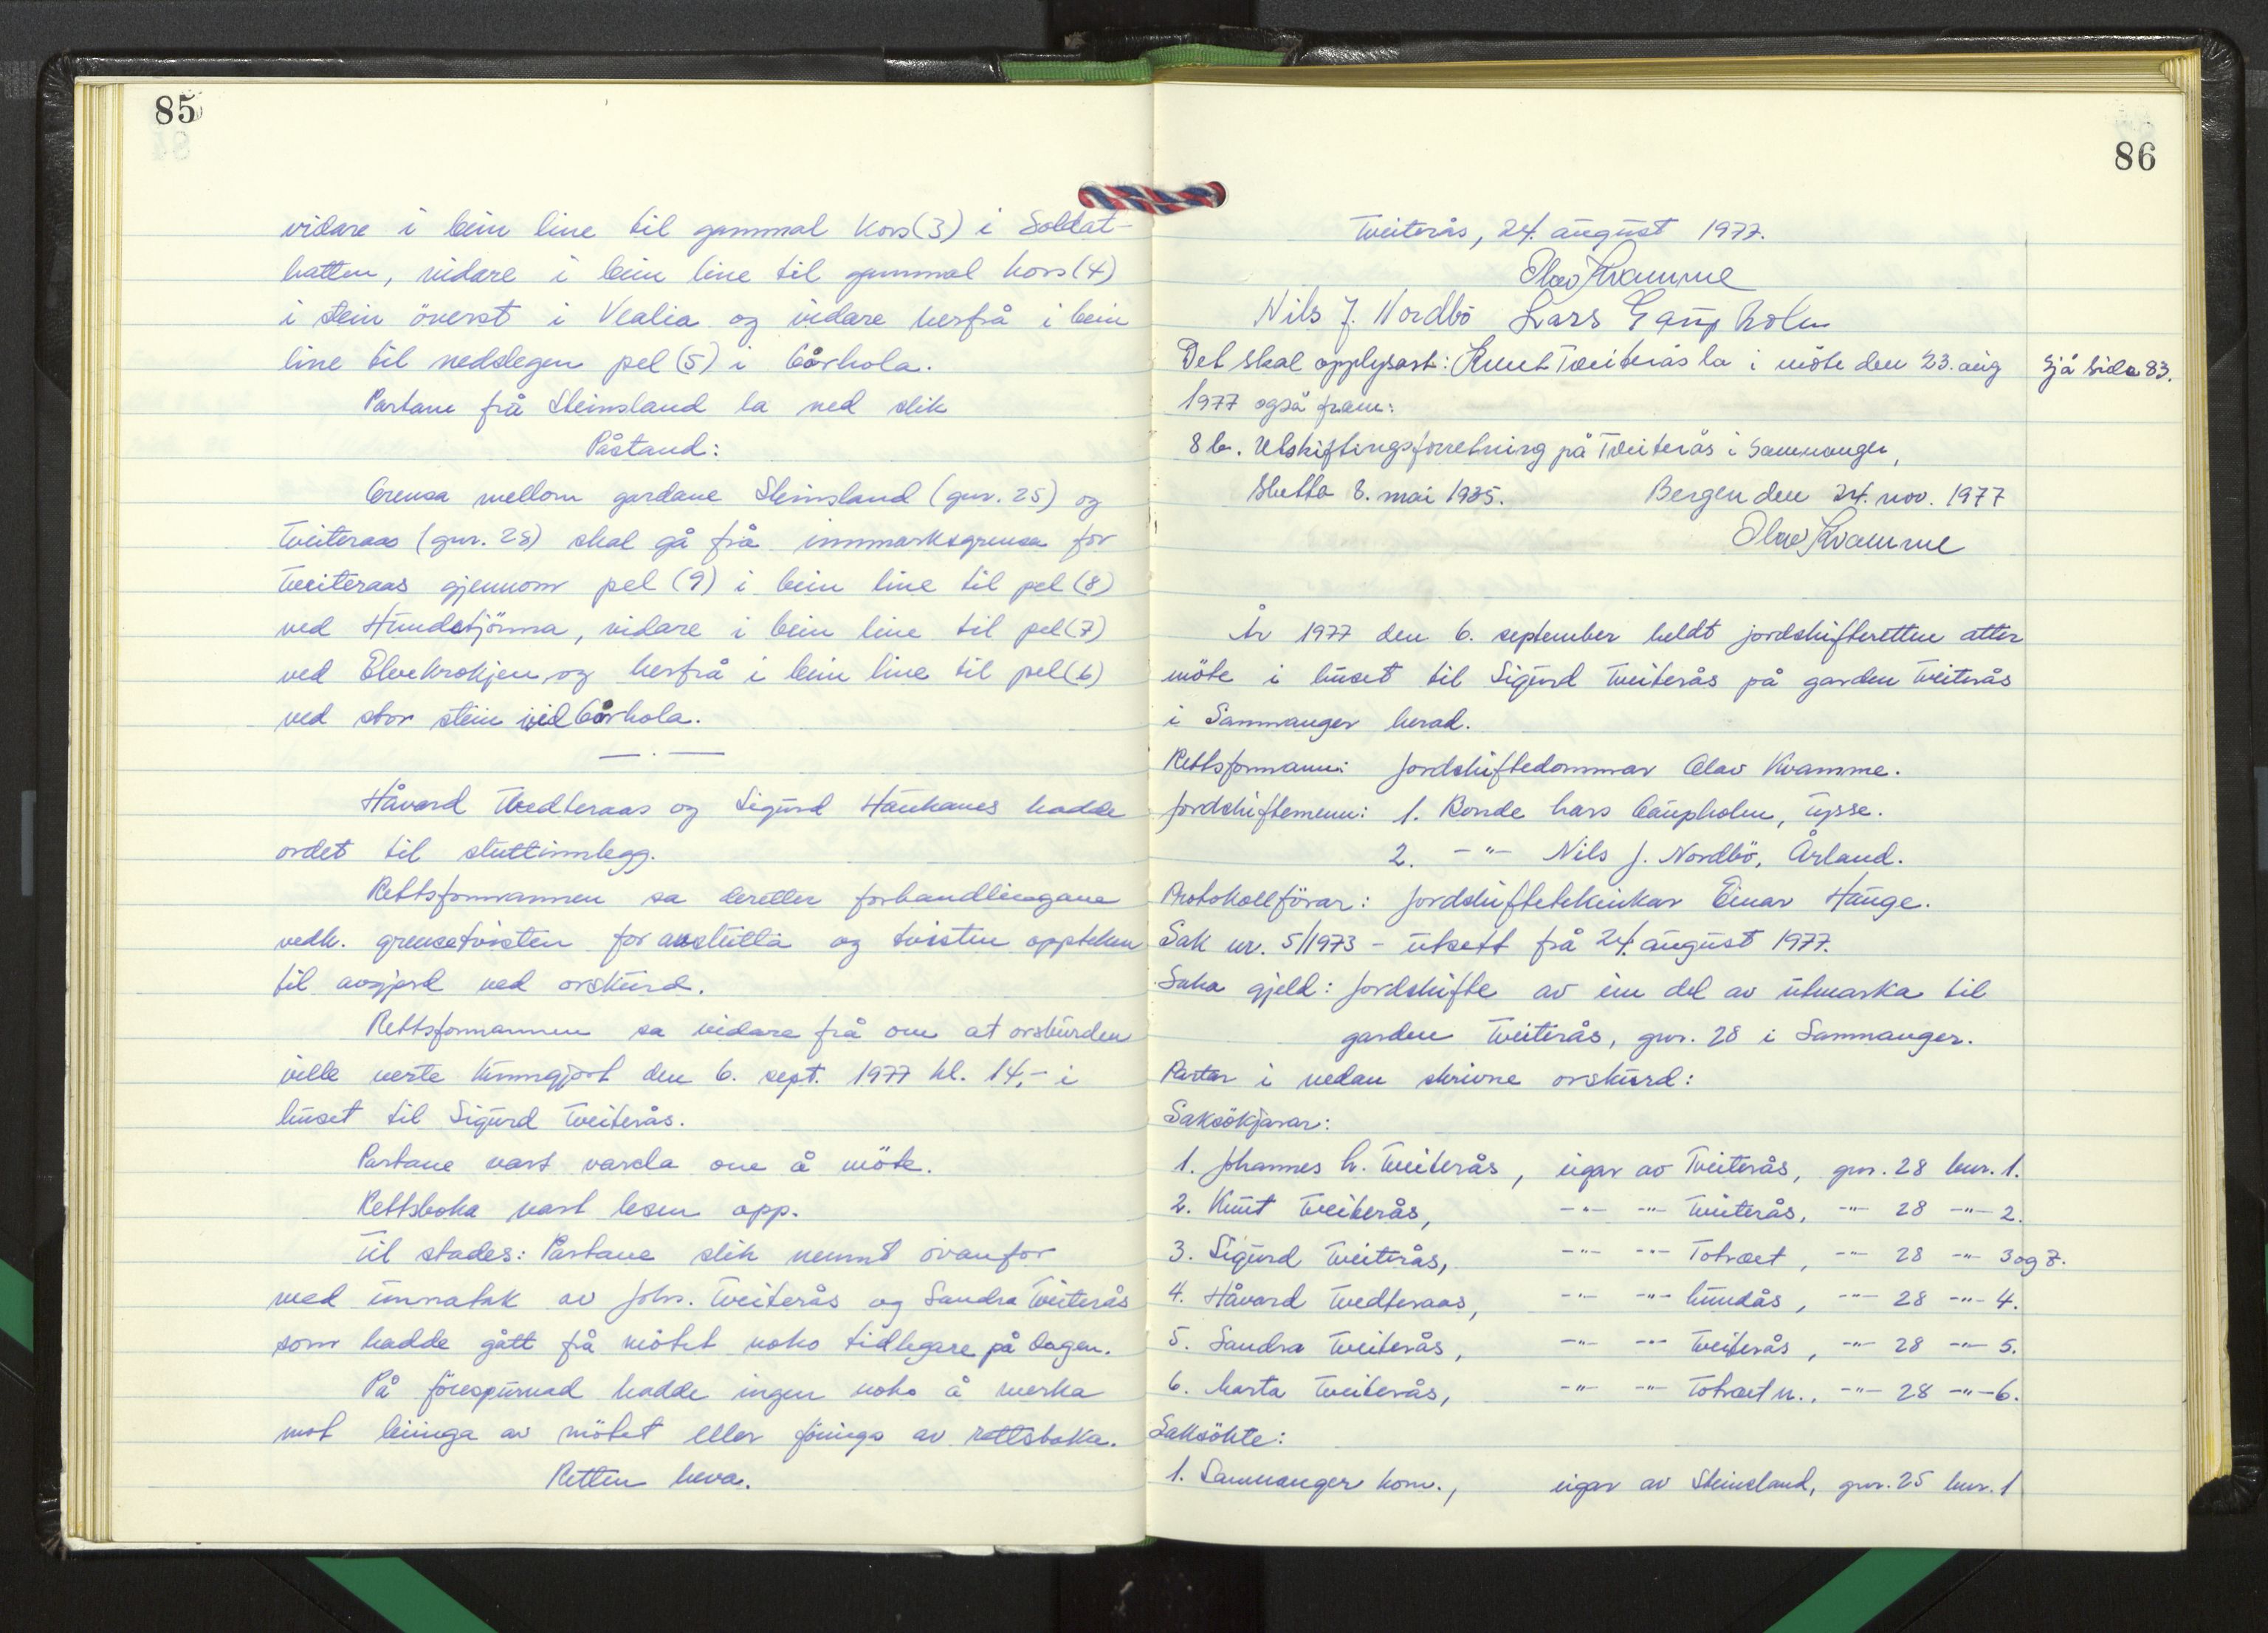 85
vidare i bein line til gammal kors (3) i Soldat-
hatten, vidare i bein line til gammal kors (4)
i stein överst i Vealia og vidare herfrå i bein
line til neddlegen pel (5) i Gårhola.
Partane frå Steinsland la ned slik
Påstand:
Grensa mellom gardane Steinsland (gnr. 25) og
Tveiteraas (gnr. 28) skal gå frå innmarksgrensa for
Tveiteraas gjennom pel (9) i bein line til pel (8)
ved Hundatjönna, vidare i bein line til pel (7)
ved Elvekrokjen og herfrå i bein line til pel (6)
ved stor stein vid Gårhola.
— . —
Håvard Tvedteraas og Sigurd Haukanes hadde
ordet til sluttinnlegg.
Rettsformannen sa deretter forhandlingane
vedk. grensetvisten for avslutta og tvisten oppteken
til avgjerd ved orskurd.
Rettsformannen sa vidare frå om at orskurden
ville verte kunngjort den 6. sept. 1977 kl. 14,- i
huset til Sigurd Tveiterås.
Partane vart varsla om å möte.
Rettsboka vart lesen opp.
Til stades: Partane slik nemnt ovanfor
med unnatak av Johs. Tveiterås og Sandra Tveiterås
som hadde gått frå mötet noko tidlegare på dagen.
På förespurnad hadde ingen noko å merka
mot leiinga av mötet eller föringa av rettsboka.
Retten heva.
86
Tveiterås, 24. august 1977.
Olav Kvamme
Nils J. Nordbö Lars Gaupholm
Det skal opplysast: Knut Tveiterås la i möte den 23. aug Sjå sida 83.
1977 også fram:
8 b. Utskiftingsforretning på Tveiterås i Samnanger,
slutta 8. mai 1935. Bergen den 24. nov. 1977
Olav Kvamme
År 1977 den 6. september heldt jordskifteretten atter
möte i huset til Sigurd Tveiterås på garden Tveiterås
i Samnanger herad.
Rettsformann: Jordskiftedommar Olav Kvamme.
Jordskiftemenn: 1. Bonde Lars Gaupholm, Tysse.
2. -"- Nils J. Nordbö, Årland.
Protokollförar: Jordskifteteknikar Einar Hauge.
Sak nr. 5/1973 - utsett frå 24. august 1977.
Saka gjeld: Jordskifte av ein del av utmarka til
garden Tveiterås, gnr. 28 i Samnanger.
Partar i nedan skrivne orskurd:
Saksökjarar:
1. Johannes L. Tveiterås, eigar av Tveiterås, gnr. 28 bnr. 1.
2. Knut Tveiterås, -"- -"- Tveiterås, -"- 28 -"- 2.
3. Sigurd Tveiterås, -"- -"- Totræet, -"- 28 -"- 3 og 7.
4. Håvard Tvedteraas, -"- -"- Lundås, -"- 28 -"- 4.
5. Sandra Tveiterås, -"- -"- Tveiterås, -"- 28 -"- 5.
6. Marta Tveiterås, -"- -"- Totræet n., -"- 28 -"- 6.
Saksökte:
1. Samnanger kom., eigar av Steinsland, gnr. 25 bnr. 1